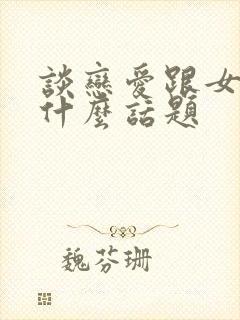 談戀愛跟女
什麼話題
魏芬珊